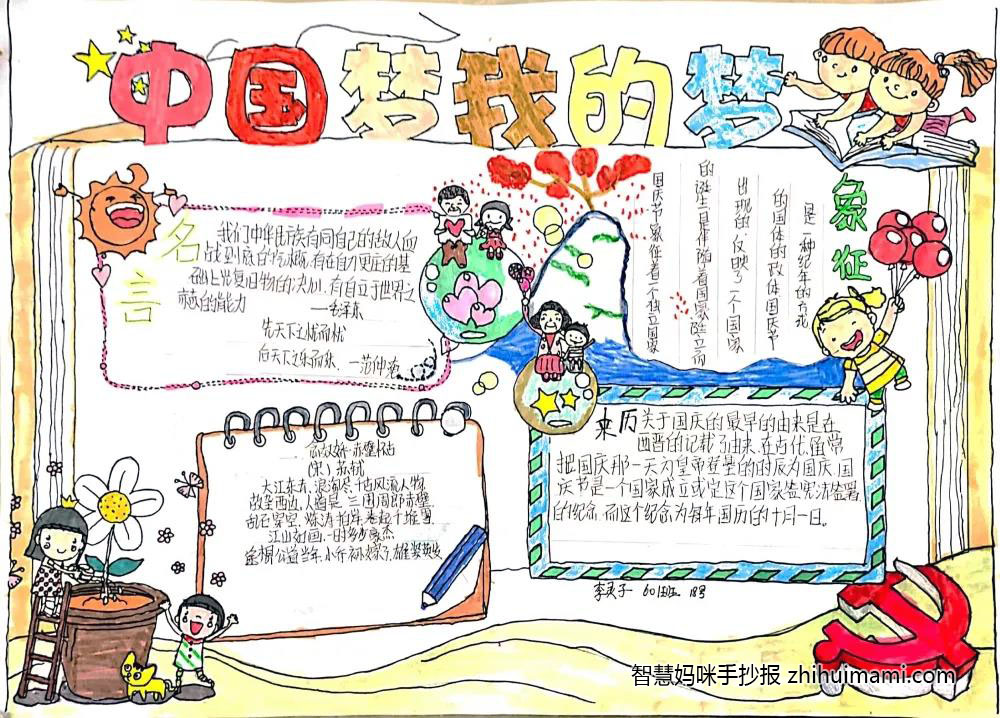 中国梦我的梦
名言
我们中华民族有同自己的敌人血
战到底的气概,有在自力更生的基
础上光复旧物的决心,有自立于世界之
林的能力
——毛泽东
先天下之忧而忧
后天下之乐而乐、一范仲淹
象征
是一种纪年的方式
的国体的政体国庆节
出现的,反映了一个国家
的诞生是伴随着国家独立而
国庆节象征着一个独立国家
念奴娇·赤壁怀古
(宋) 苏轼
大江东去,浪淘尽,千古风流人物
故垒西边,人道是,三国周郎赤壁
乱石穿空,
江山如画,一时多少豪杰
公瑾当年,小乔初嫁了,雄姿英发
来历
关于国庆的最早的由来是在
西晋的记载了由来,在古代,通常
把国庆那一天为皇帝登基的时辰为国庆国
庆节是一个国家成立或定这个国家签宪法签署
的纪念,而这个纪念为每年国历的十月一日。
601班 18号
智慧妈咪手抄报 zhihuimami.com